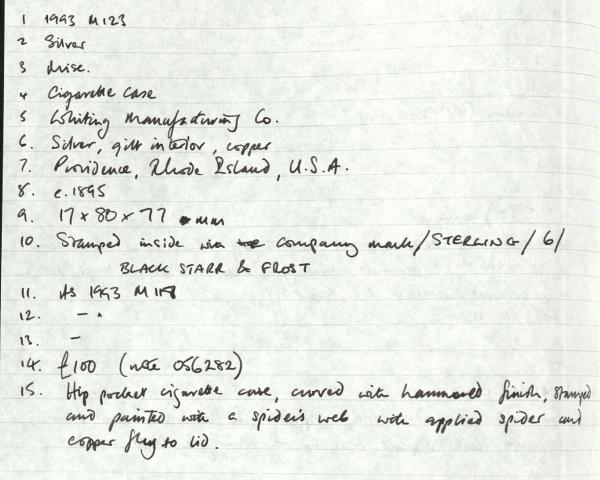 1 1993 M123
2 Silver
3 Misc.
4 Cigarette case
5 Whiting Manufacturing Co.
6. Silver, gilt interior, copper
7. Providence, Rhode Island, U.S.A.
8. c.1895
9. 17 x 80 x 77 mm
10. Stamped inside with company mark/STERLING/6/
BLACK STARR & FROST
11. As 1993
12. -.
13. -
14. £100 (note 056282)
15. Hip pocket cigarette case, curved with hammered finish, stamped
and painted with a spider's web with applied spider and
copper fly to lid.